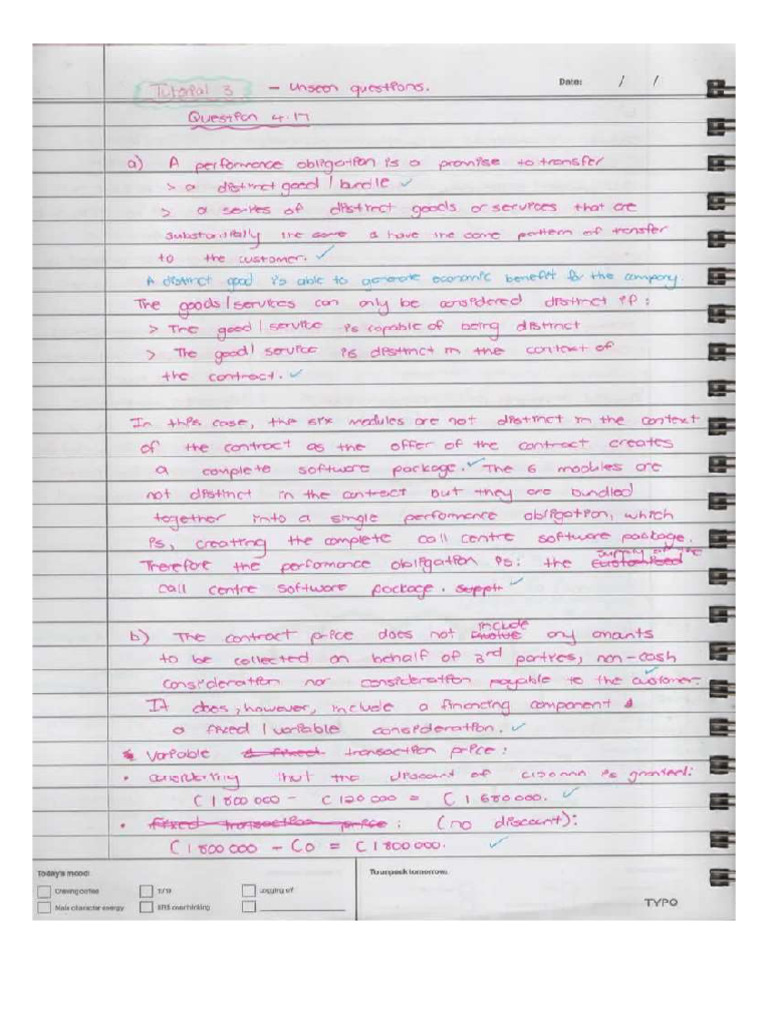 Tutorial 3 - Unseen questions.
Date: / /
Question 4.17
a) A performance obligation is a promise to transfer
> a distinct good / bundle ✓
> a series of distinct goods or services that are
substantially the same & have the same pattern of transfer
to the customer. ✓
A distinct good is able to generate economic benefit for the company.
The goods/services can only be considered distinct if:
> The good/service is capable of being distinct
> The good/service is distinct in the context of
the contract. ✓
In this case, the six modules are not distinct in the context
of the contract as the offer of the contract creates
a complete software package. ✓ The 6 modules are
not distinct in the contract but they are bundled
together into a single performance obligation, which
is, creating the complete call centre software package.
Therefore the performance obligation is: the supply of the
call centre software package. ✓
b) The contract price does not include any amounts
to be collected on behalf of 3rd parties, non-cash
consideration nor consideration payable to the customer. ✓
It does, however, include a financing component &
a fixed / variable consideration. ✓
Variable & fixed transaction price:
• considering that the discount of C120 000 is granted:
C1 800 000 - C120 000 = C1 680 000. ✓
• fixed transaction price: (no discount):
C1 800 000 - C0 = C1 800 000. ✓
Today's mood:
To unpack tomorrow:
Main character energy
TYPO